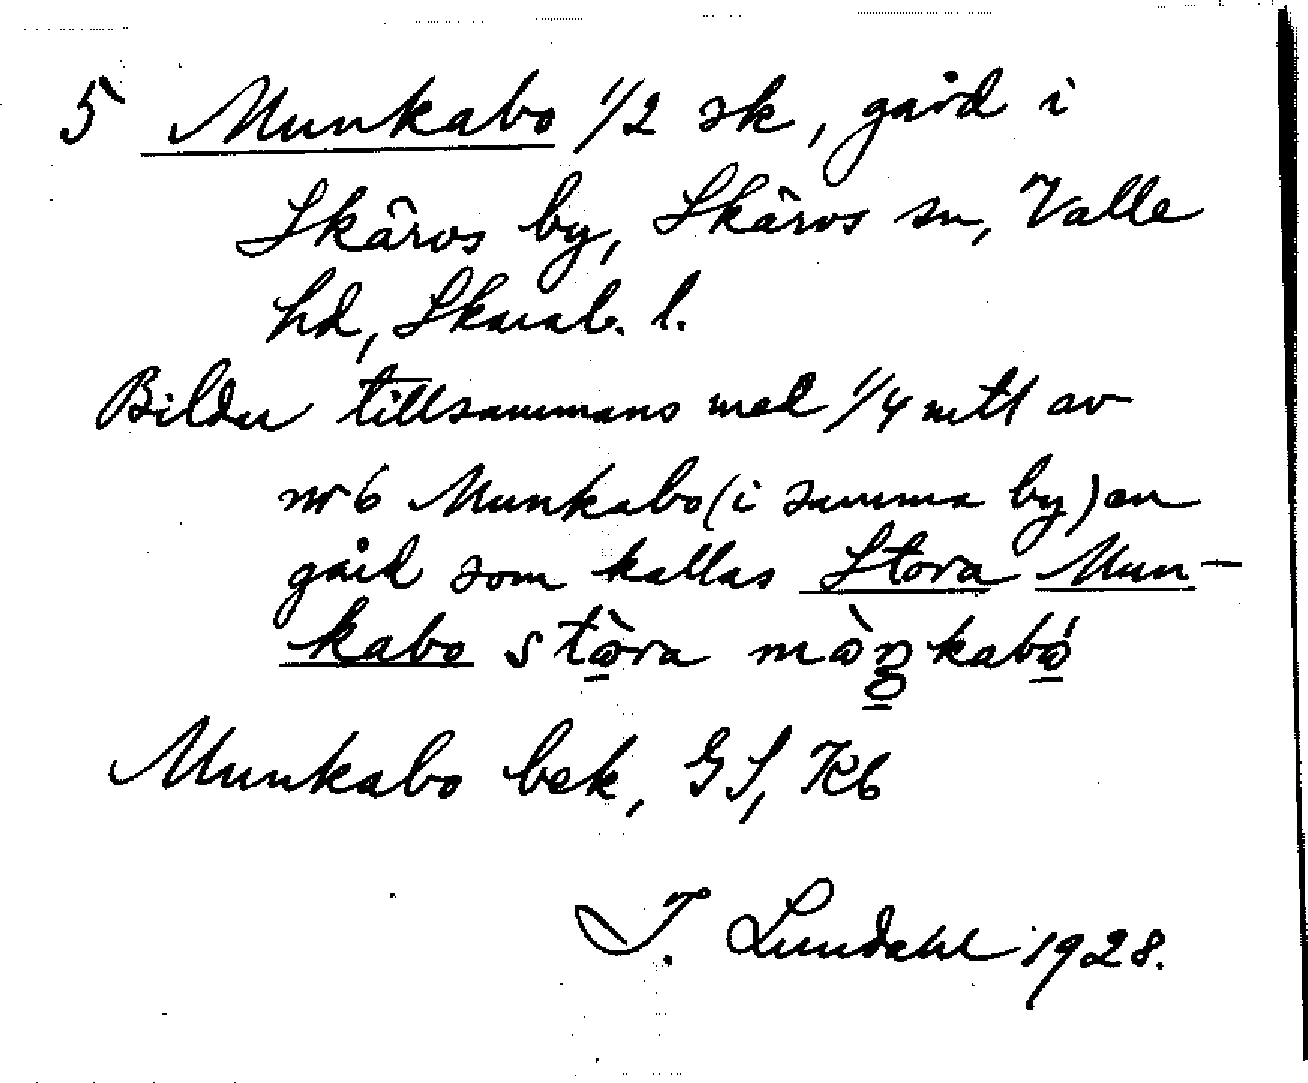 5 Munkabo 1/2 sk, gård i
Skärvs by, Skärvs sn, Valle
hd, Skarab. l.
Bildar tillsammans med 1/4 mtl av
nr 6 Munkabo (i samma by) en
gård som kallas Stora Mun-
kabo
Munkabo bek, GS, Kb
I. Lundahl 1928.